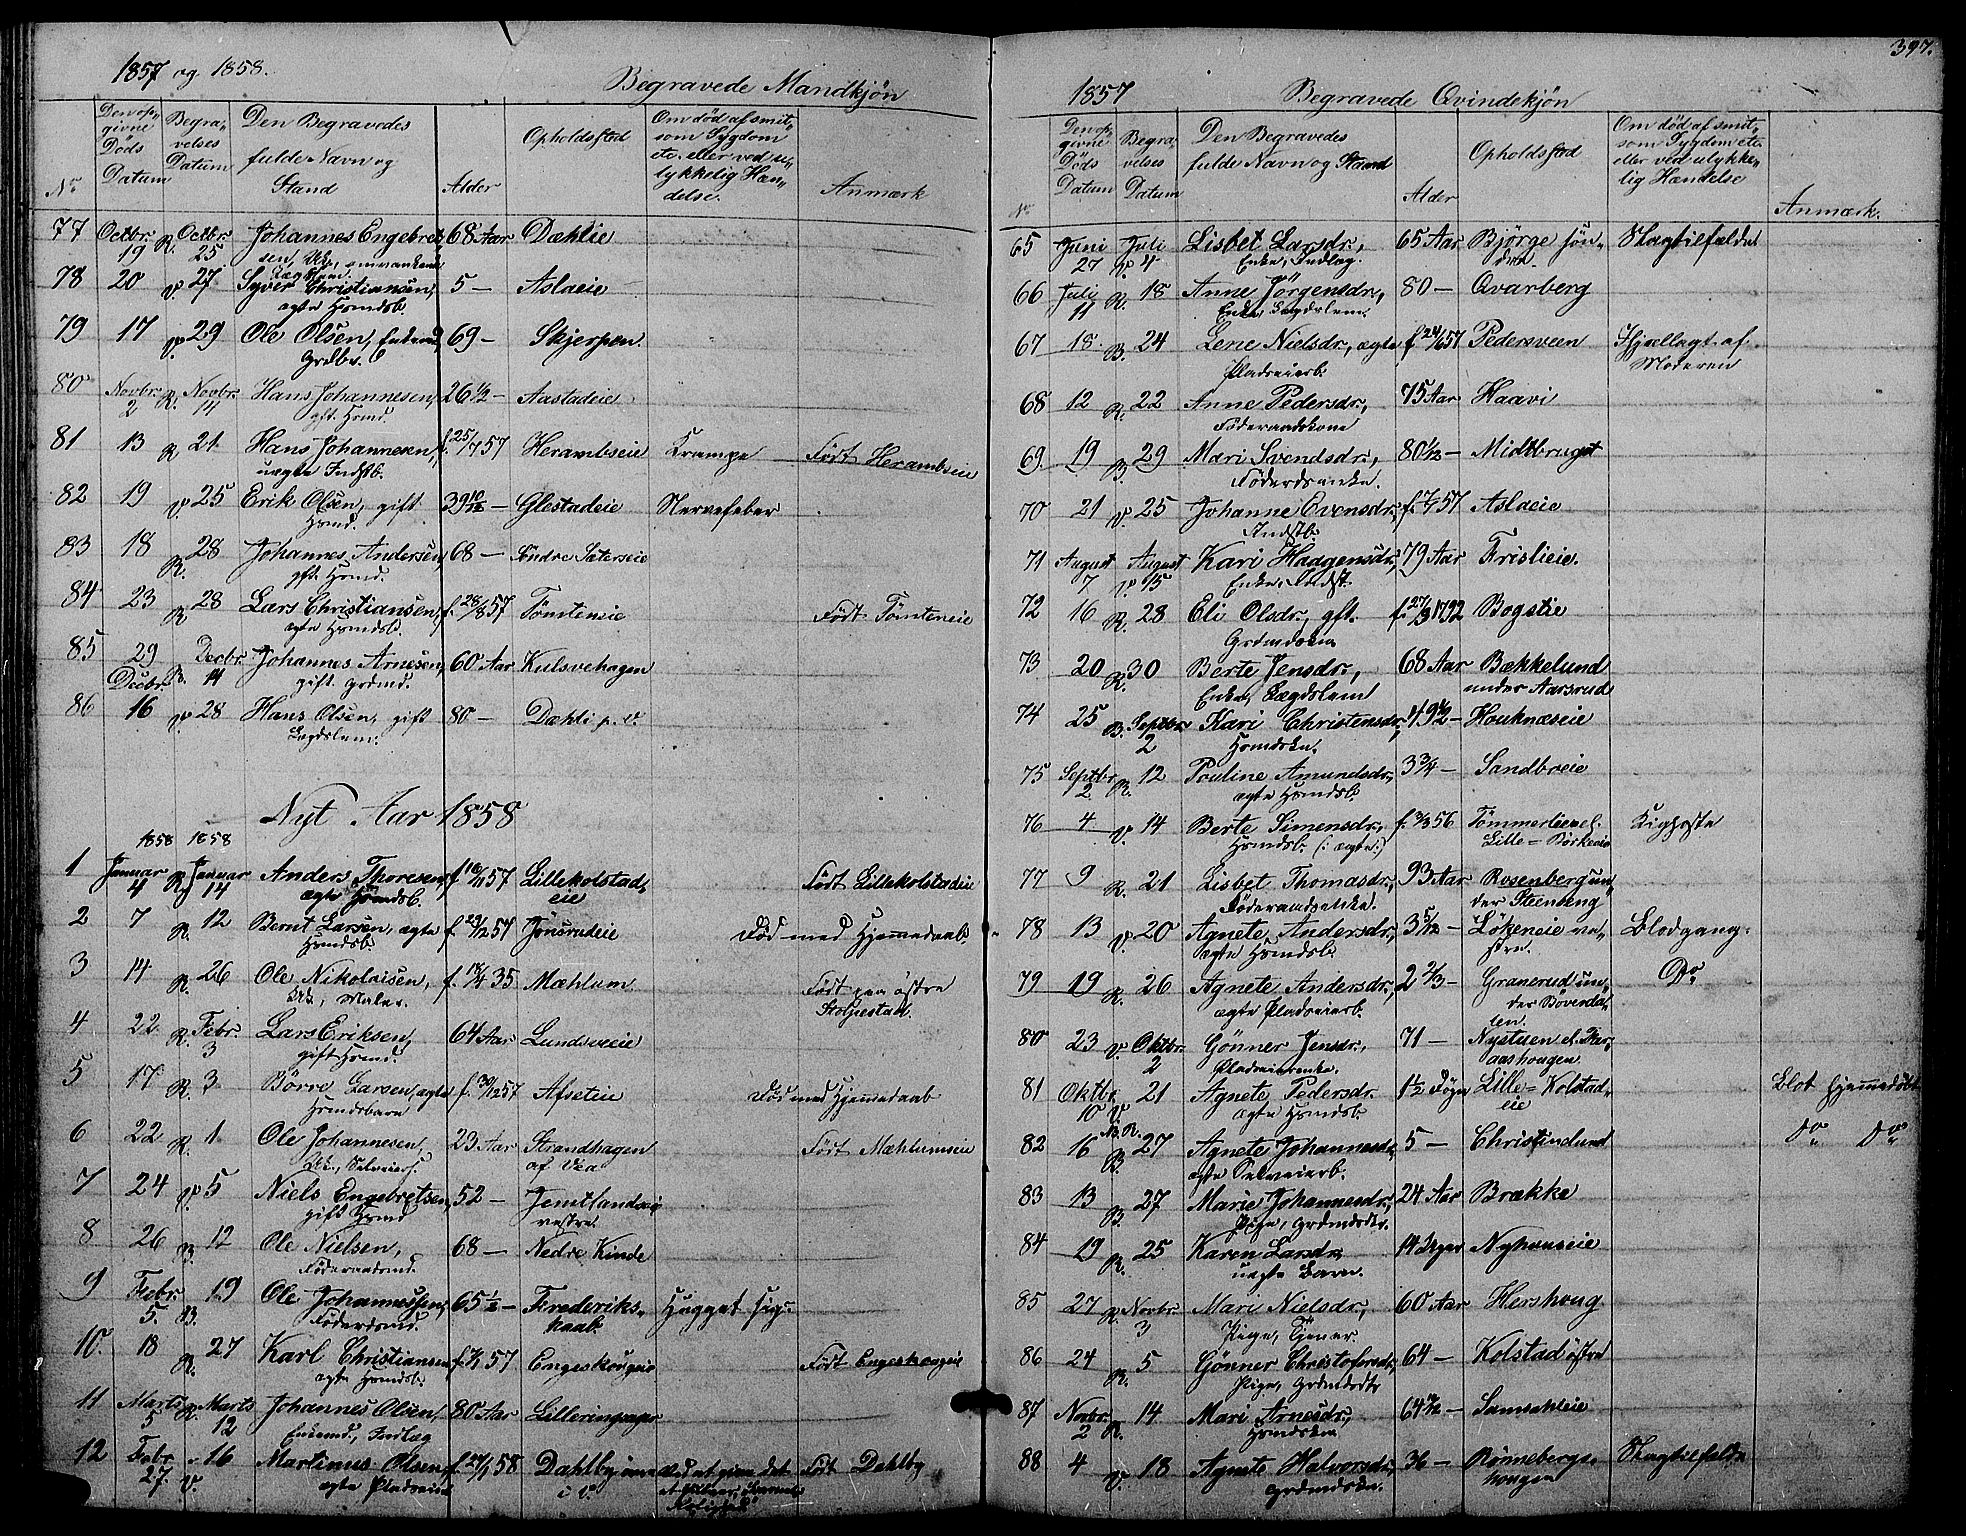 1857 og 1858.
Begravede Mandkjøn
No
Den opgivne Döds Datum
Begravelses Datum
Den Begravedes fulde Navn og Stand
Alder
Opholdssted
Om död af smitsom Sygdom etc. eller ved ulykkelig Hændelse.
Anmærk
77 Octbr. 19 R. Octbr 25 Johannes Engebretsen, Uk., omvankende Lægdslem 68 Aar Dæhlie
78 20 V. 27 Syver Christiansen, ægte Hsmdsb. 5 — Aslaeie
79 17 V. 29 Ole Olsen, Enkemd, Grdbr. 69 — Skjerpen
80 Novbr. 2 R. Novbr. 14 Hans Johannesen, gft. Hsmd. 26 1/2 — Aastadeie
81 13 R. 21 Hans Johannesen, uægte Indstb. f. 25/7 57 Herambseie Krampe Født Herambseie
82 19 V. 25 Erik Olsen, gift Hsmd. 39 10/12 — Glestadeie Nervefeber
83 18 R. 28 Johannes Andersen, gft. Hsmd. 68 — Söndre Saterseie
84 23 R 28 Lars Christiansen, ægte Hsmdsb. f. 28/8 57 Tömteneie Født Tömteneie
85 29 B. Decbr. 14 Johannes Arnesen, gift grdmd. 60 Aar Kulsvehagen
86 Decbr. 16 V. 28 Hans Olsen, gift Lægdslem. 80 — Dæhli p. V.
Nyt Aar 1858
1858 1858
1 Januar 4 R. Januar 14 Anders Thoresen, ægte Hsmdsb. f. 57 Lillekolstadeie Født Lillekolstadeie
2 7 R. 12 Bernt Larsen, ægte Hsmdsb f. 29/12 57 Jönsrudeie Död med Hjemmedaab
3 14 R. 26 Ole Nikolaisen, Uk., Maler. f. 18/4 35 Mæhlum Født paa østre Stolpestad.
4 22 R. Febr. 3 Lars Eriksen, gift Hsmd. 64 Aar Lundsveeie
5 17 R. 3 Börre Larsen, ægte Hsmdsbarn f. 30/12 57 Afseteie Död med Hjemmedaab
6 22 R. 1 Ole Johannesen, Uk., Selveiers. 23 Aar Strandhagen af Vea Født Mæhlumseie
7 24 V. 5 Niels Engebretsen, gift Hsmd 52 — Jemtlandseie vestre
8 26 B. 12 Ole Nielsen, Föderaadsmd. 68 — Nedre Kinde
9 Febr. 5. B. 19 Ole Johannessen, Föderdsmd. 65 1/2 — Frederikskaab. Hugget sig
10. 18 R. 27 Karl Christiansen, ægte Hsmdsb. f. 57 Engeskougeie Født Engeskougeie
11 Marts 5 R. Marts 12 Johannes Olsen, Enkemd, Indlæg 80 Aar Lilleringsager
12 Febr. 27. V. 16 Martinus Olsen, ægte Pladseie f. 58 Dahlby i V. Født Dahlby
397.
1857
Begravede Qvindekjøn
No
Den opgivne Döds Datum
Begravelses Datum
Den Begravedes fulde Navn og Stand
Alder
Opholdssted
Om död af smitsom Sygdom etc. eller ved ulykkelig Hændelse
Anmærk.
65 Juni 27 V. Juli 4 Lisbet Larsdr., Enke, Indlæg. 65 Aar Bjørge søndre Slagtilfælde
66 Juli 11 R. 18 Anne Jörgensdr., Enke, Lægdslem. 80 — Qvarberg
67 18 B. 24 Lene Nielsdr., ægte Pladseierb. f 24/6 57 Pedersveen Ihjellagt af Moderen
68 12 R. 22 Anne Pedersdr., Föderaadskone 75 Aar Haavi
69. 19 B. 29 Mari Svendsdr., Föderdsenke. 80 1/2 — Midtbruget
70 21 V. 25 Johanne Evensdr., Indstb. f. 57 Aslaeie
71 August 7 V. August 15 Kari Haagensdr., Enke, Indst. 79 Aar Frislieie.
72 16 R. 28 Eli Olsdr., gft. Grdmdskn f. 27/3 1792 Bogstie
73. 20 R. 30 Berte Jensdr., Enke, Lægdslem 68 Aar Bækkelund under Aarsrud
74 25 B. Septbr. 2 Kari Christensdr., Hsmdskn. 49 — Houknæseie
75 Septbr. 2 R. 12 Pouline Amundsdr., ægte Hsmdsb. 3 3/4 — Sandbveie
76 4 V. 14 Berte Simensdr., Hsmdsb. (: ægte :) f. 56 Tömmerlien el. Lille=Börkeeie Kighoste
77 9 R. 21 Lisbet Thomasdr., Föderaadsenke. 93 Aar Rosenberg under Steenseng
78 13 V. 20 Agnete Andersdr., ægte Hsmdsb. 3 5/12 — Lökeneie vestre. Blodgang.
79 19 R. 26 Agnete Andersdr., ægte Pladseierb. 2 2/3 — Granerud under Bøverdalen. Do
80 23 V. Oktbr. 2 Gönner Jensdr., Pladseierenke. 71 — Nystuen el. Karaashougen.
81 Oktbr. 10 V. 21 Agnete Pedersdr. ægte Hsmdsb. 1 1/2 Døgn Lille=Kolstadeie Blot hjemmedöbt
N.B.
82 16 B. 27 Agnete Johannesdr. ægte Selveierb. 5 — Christinelund do do
83 13 B. 27 Marie Johannesdr., Pige, Grdmdsdtr. 24 Aar Brække
84 19 R. 25 Karen Larsdr., uægte Barn. 14 Dage Nyhuuseie
85 27 R. Novbr. 3 Mari Nielsdr., Pige, Tjener. 60 Aar Hershoug
86 24 R. 5 Gönner Christofersdr., Pige, Grdmdsdtr 64 — Kolstad østre
87 Novbr. 2 R. 14 Mari Arnesdr., Hsmdskn 64 — Samsahleie
88 4 V. 18 Agnete Halvorsdr., Grdmdskn. 36 — Rönnebergshougen Slagtilfælde